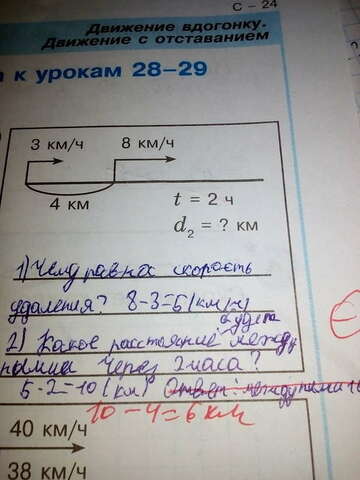 С – 24
Движение вдогонку.
Движение с отставанием
к урокам 28–29
3 км/ч 8 км/ч
4 км
t = 2 ч
d₂ = ? км
1) Чему равна скорость
удаления? 8-3=5(км/ч)
будет
2) Какое расстояние между
ними через 2 часа?
5·2=10(км) Ответ: между ними
10-4=6км
40 км/ч
38 км/ч